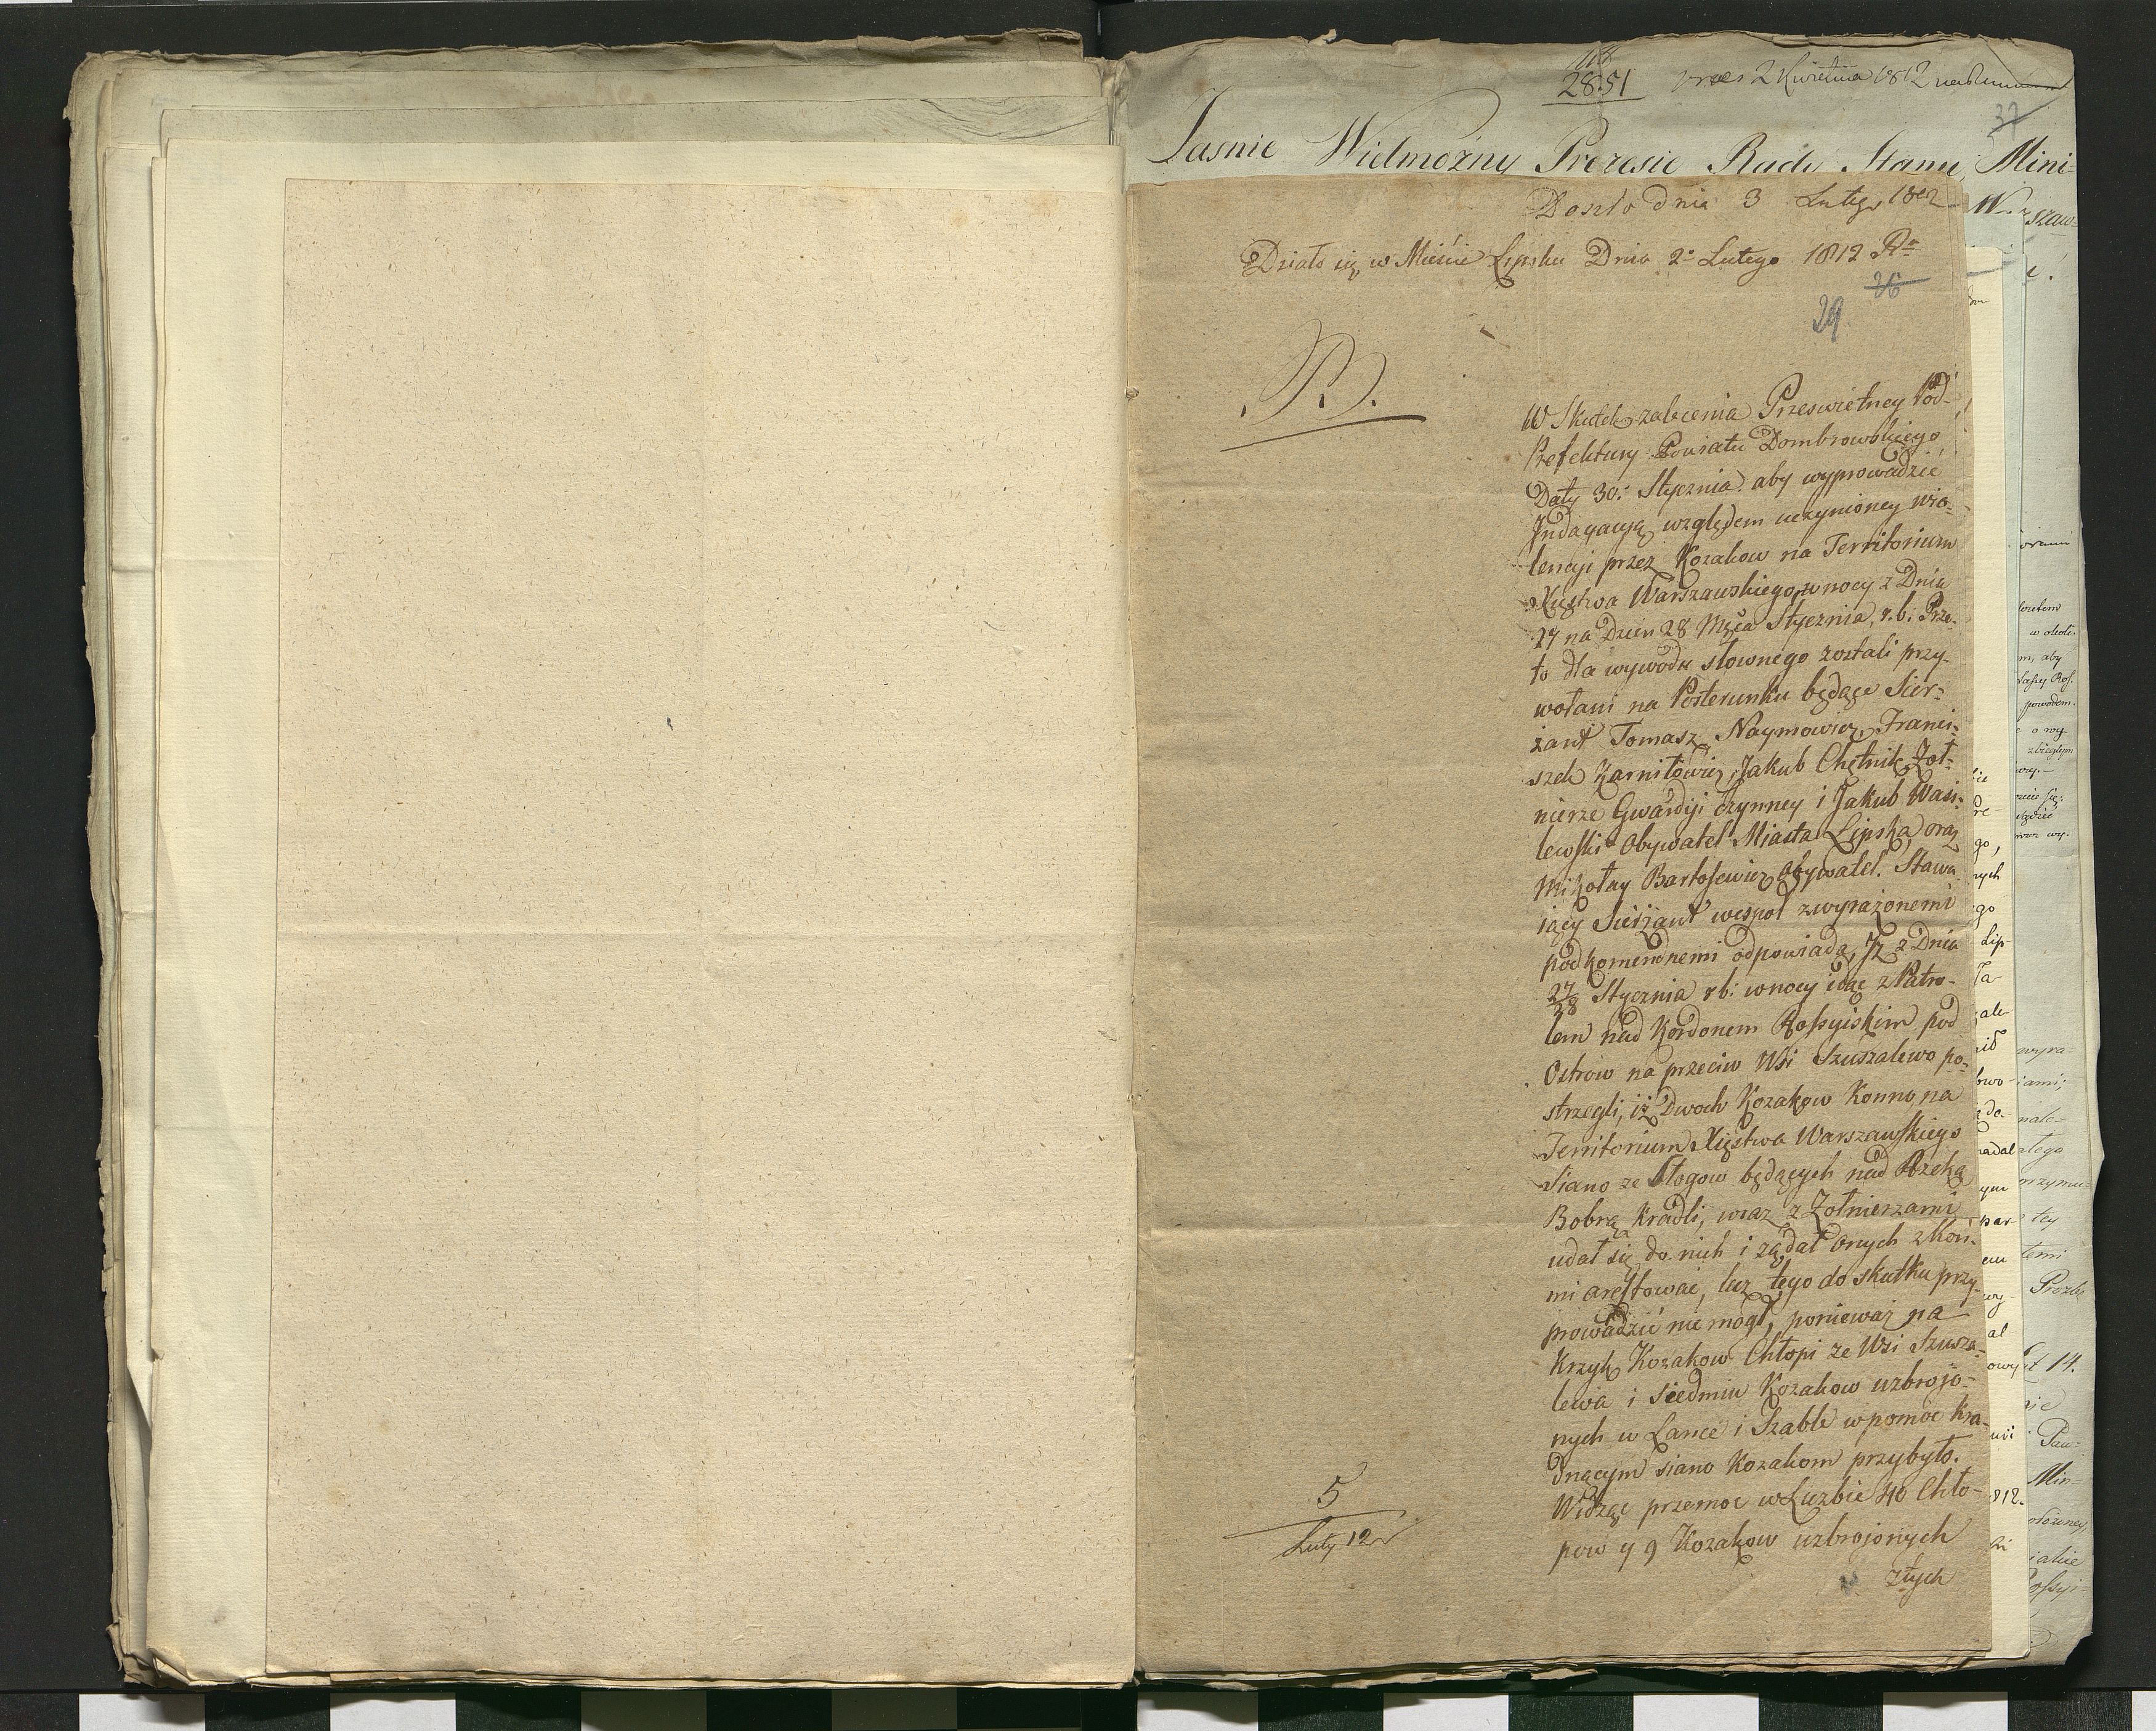 2851
2 Kwietnia 1812
37
Jasnie Wielmożny Prezesie Rady Stanu, Mini-
Doszło dnia 3 Lutego 1812
Działo się w Mieście Lipsku Dnia 2º Lutego 1812 Rº
26
29
W Skutek zalecenia Prześwietney Pod-
Prefektury Powiatu Dombrowskiego
Daty 30. Stycznia. aby wyprowadzić
Indagacyą względem uczynioney wio-
lencyi przez Kozakow na Territorium
Xięstwa Warszawskiego, w nocy z Dnia
27 na Dzien 28 Mca Stycznia, r. b. Prze-
to dla wywodu słownego zostali przy-
wołani na Posterunku będące Sier-
żant Tomasz Naymowicz, Franci-
szek Karniłowicz, Jakub Chętnik Żoł-
nierze Gwardyi czynney i Jakub Wasi-
lewski Obywatel Miasta Lipska, oraz
Mikołay Bartosewicz Obywatel. Stawa-
iący Sierżant wespoł z wyrażonemi
podkomendnemi odpowiada, Iż z Dnia
27/28 Stycznia r b: w nocy idąc z Patro-
lem nad Kordonem Rossyiskim pod
Ostrow na przeciw Wsi Szuszalewo po-
strzegli, iż Dwoch Kozakow Konno na
Territorium Xięstwa Warszawskiego
Siano ze Stogow będących nad Rzeką
Bobrą kradli, wraz z Żołnierzami
udał się do nich i żądał onych z Koń-
mi aresztować, lecz tego do skutku przy-
prowadzić nie mogł, ponieważ na
Krzyk Kozakow Chłopi ze Wsi Szusza-
lewa i siedmiu Kozakow uzbrojo-
nych w Lance i Szable w pomoc kra-
dnącym siano Kozakom przybyło.
Widząc przemoc w Liczbie 40 Chło-
pow y 9 Kozakow uzbrojonych
złych
5
Luty 12